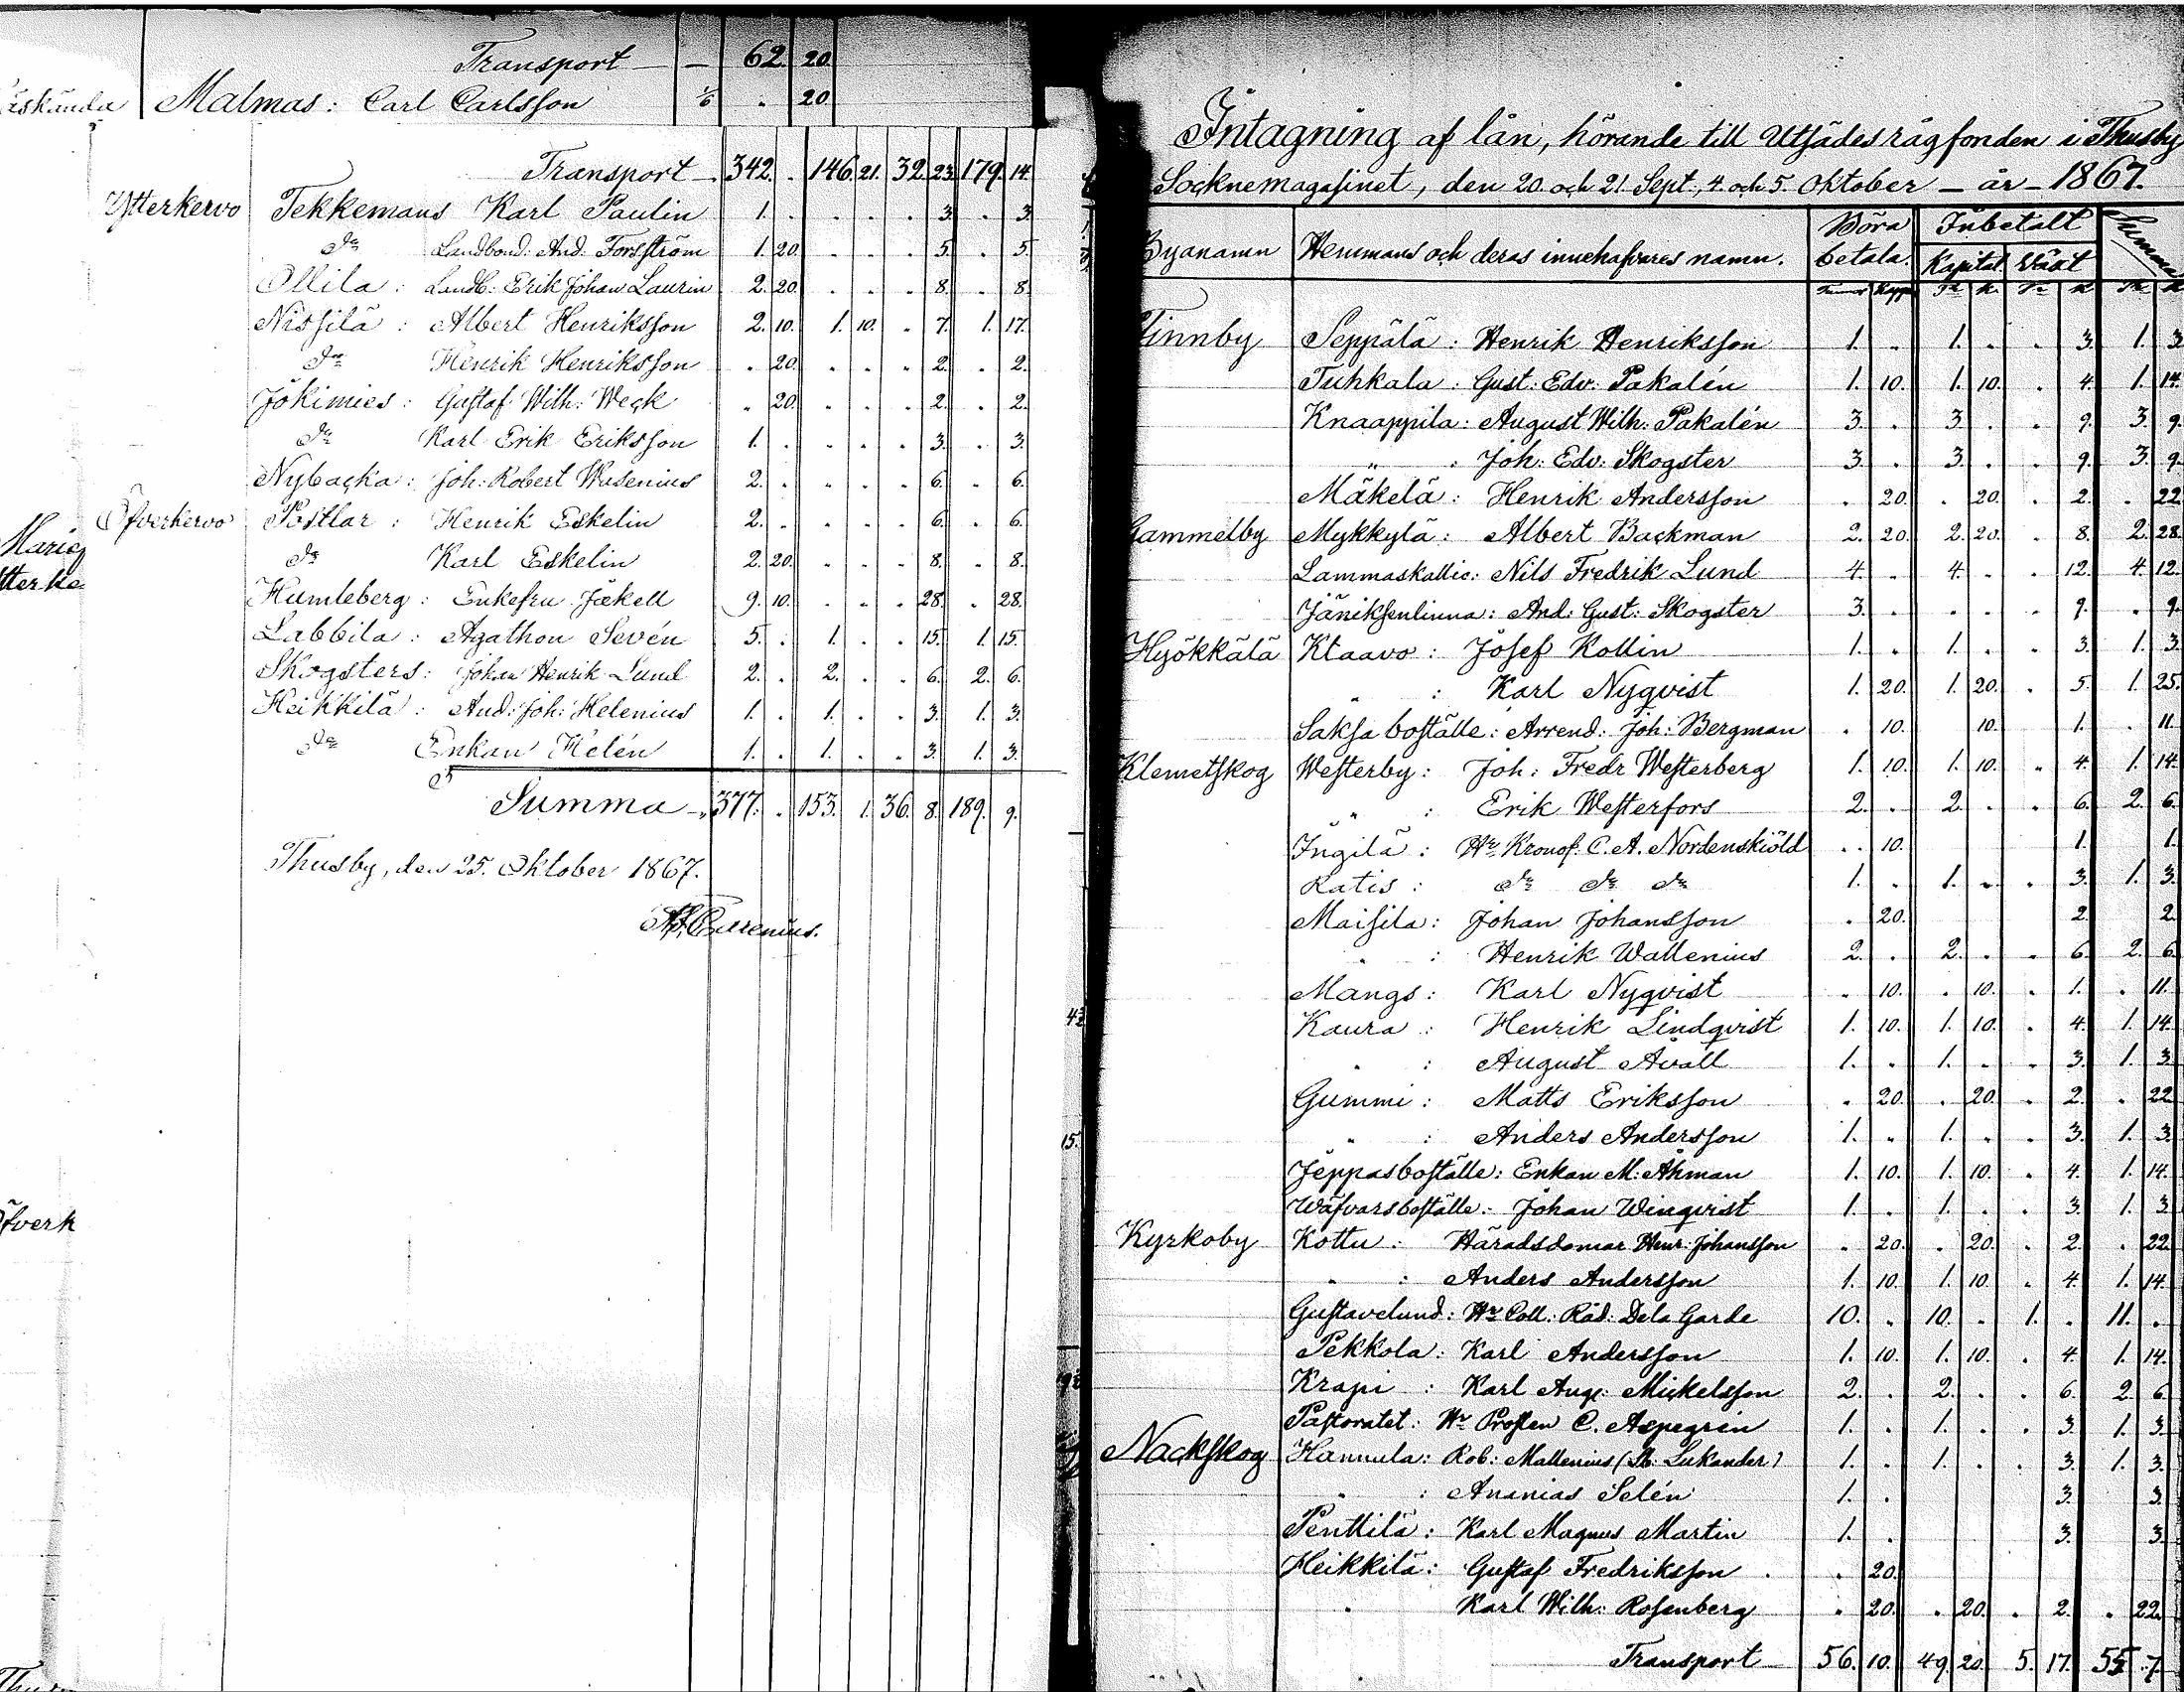 Transport — 62. 20.
äskända Malmas: Carl Carlsson 1/6 . 20
Transport 342. . 146. 21. 32. 23. 179. 14.
Ytterkervo Tekkemans Karl Paulin 1. . . . . 3. . 3.
do Landbond: And. Forsström 1. 20. . . . 5. . 5.
Ollila: Landb: Erik Johan Laurin 2. 20. . . . 8. . 8.
Nissilä: Albert Henriksson 2. 10. 1. 10. . 7. 1. 17.
do Henrik Henriksson . 20. . . . 2. . 2.
Jökimies: Gustaf Wilh: Weck . 20. . . . 2. . 2.
do Karl Erik Eriksson 1. . . . . 3. . 3.
Nybacka: Joh: Robert Wasenius 2. . . . . 6. . 6.
Öfverkervo Postlar: Henrik Eskelin 2. . . . . 6. . 6.
do Karl Eskelin 2. 20. . . . 8. . 8.
Humleberg: Enkefru Jækell 9. 10. . . . 28. . 28.
Labbila: Agathon Sevén 5. . 1. . . 15. 1. 15.
Skogsters: Johan Henrik Lund 2. . 2. . . 6. 2. 6.
Heikkilä: And: Joh: Helenius 1. . 1. . . 3. 1. 3.
do Enkan Helén 1. . 1. . . 3. 1. 3.
Summa 377. . 153. 1. 36. 8. 189. 9.
Thusby, den 25. Oktober 1867.
Marie
tterke
Öfverk
Intagning af lån, hörande till Utsädesrågfonden i Thusby
Socknemagasinet, den 20. och 21. Sept., 4. och 5. Oktober — år — 1867.
Byanamn Hemmans och deras innehafvares namn. Böra betala. Inbetalt Summa
Kapital. Växt
Finnby Seppälä: Henrik Henriksson 1. . 1. . . 3. 1. 3
Tuhkala: Gust: Edv: Pakalén 1. 10. 1. 10. . 4. 1. 14.
Knaappila: August Wilh: Pakalén 3. . 3. . . 9. 3. 9.
" : Joh: Edv: Skogster 3. . 3. . . 9. 3. 9.
Mäkelä: Henrik Andersson . 20. . 20. . 2. . 22
Gammelby Mykkylä: Albert Backman 2. 20. 2. 20. . 8. 2. 28.
Lammaskallio: Nils Fredrik Lund 4. . 4. . . 12. 4. 12.
Jäniksenlinna: And: Gust: Skogster 3. . . . . 9. . 9.
Hyökkälä Klaavo: Josef Kollin 1. . 1. . . 3. 1. 3.
" : Karl Nyqvist 1. 20. 1. 20. . 5. 1. 25.
Saksa boställe: Arrend: Joh: Bergman . 10. 10. . 1. . 11.
Klemetskog Westerby: Joh: Fredr Westerberg 1. 10. 1. 10. " 4. 1. 14.
" : Erik Westerfors 2. . 2. . . 6. 2. 6.
Ingilä: Hr Kronof. C. A. Nordenskiöld . . 10. 1. 1.
Katis: do do do 1. . 1. . . 3. 1. 3.
Maisila: Johan Johansson . 20. 2. 2.
" : Henrik Wallenius 2. . 2. . . 6. 2. 6.
Mangs: Karl Nyqvist . 10. . 10. . 1. . 11.
Kaura: Henrik Lindqvist 1. 10. 1. 10. . 4. 1. 14.
" : August Avall 1. . 1. . . 3. 1. 3.
Gummi: Matts Eriksson . 20. . 20. . 2. . 22
" : Anders Andersson 1. . 1. . . 3. 1. 3.
Jeppasboställe: Enkan M. Åhman 1. 10. 1. 10. . 4. 1. 14.
Wäfvarsboställe: Johan Winqvist 1. . 1. . . 3. 1. 3.
Kyrkoby Kottu: Häradsdomar Henr: Johansson . 20. . 20. . 2. . 22.
" : Anders Andersson 1. 10. 1. 10. . 4. 1. 14.
Gustavelund: Hr Coll: Råd: De la Garde 10. . 10. . 1. . 11. .
Pekkola: Karl Andersson 1. 10. 1. 10. . 4. 1. 14.
Krapi: Karl Aug: Mickelsson 2. . 2. . . 6. 2. 6
Pastoratet: Hr Prosten C. Aspegrén 1. . 1. . . 3. 1. 3.
Nackskog Hannula: Rob: Mallenius ( Lukander) 1. . 1. . . 3. 1. 3.
" : Ananias Selén 1. . 3. 3.
Penttilä: Karl Magnus Martin 1. . 3. 3.
Heikkilä: Gustaf Fredriksson . . 20.
" Karl Wilh: Rosenberg . 20. . 20. . 2. . 22.
Transport 56. 10. 49. 20. 5. 17. 55. 7.